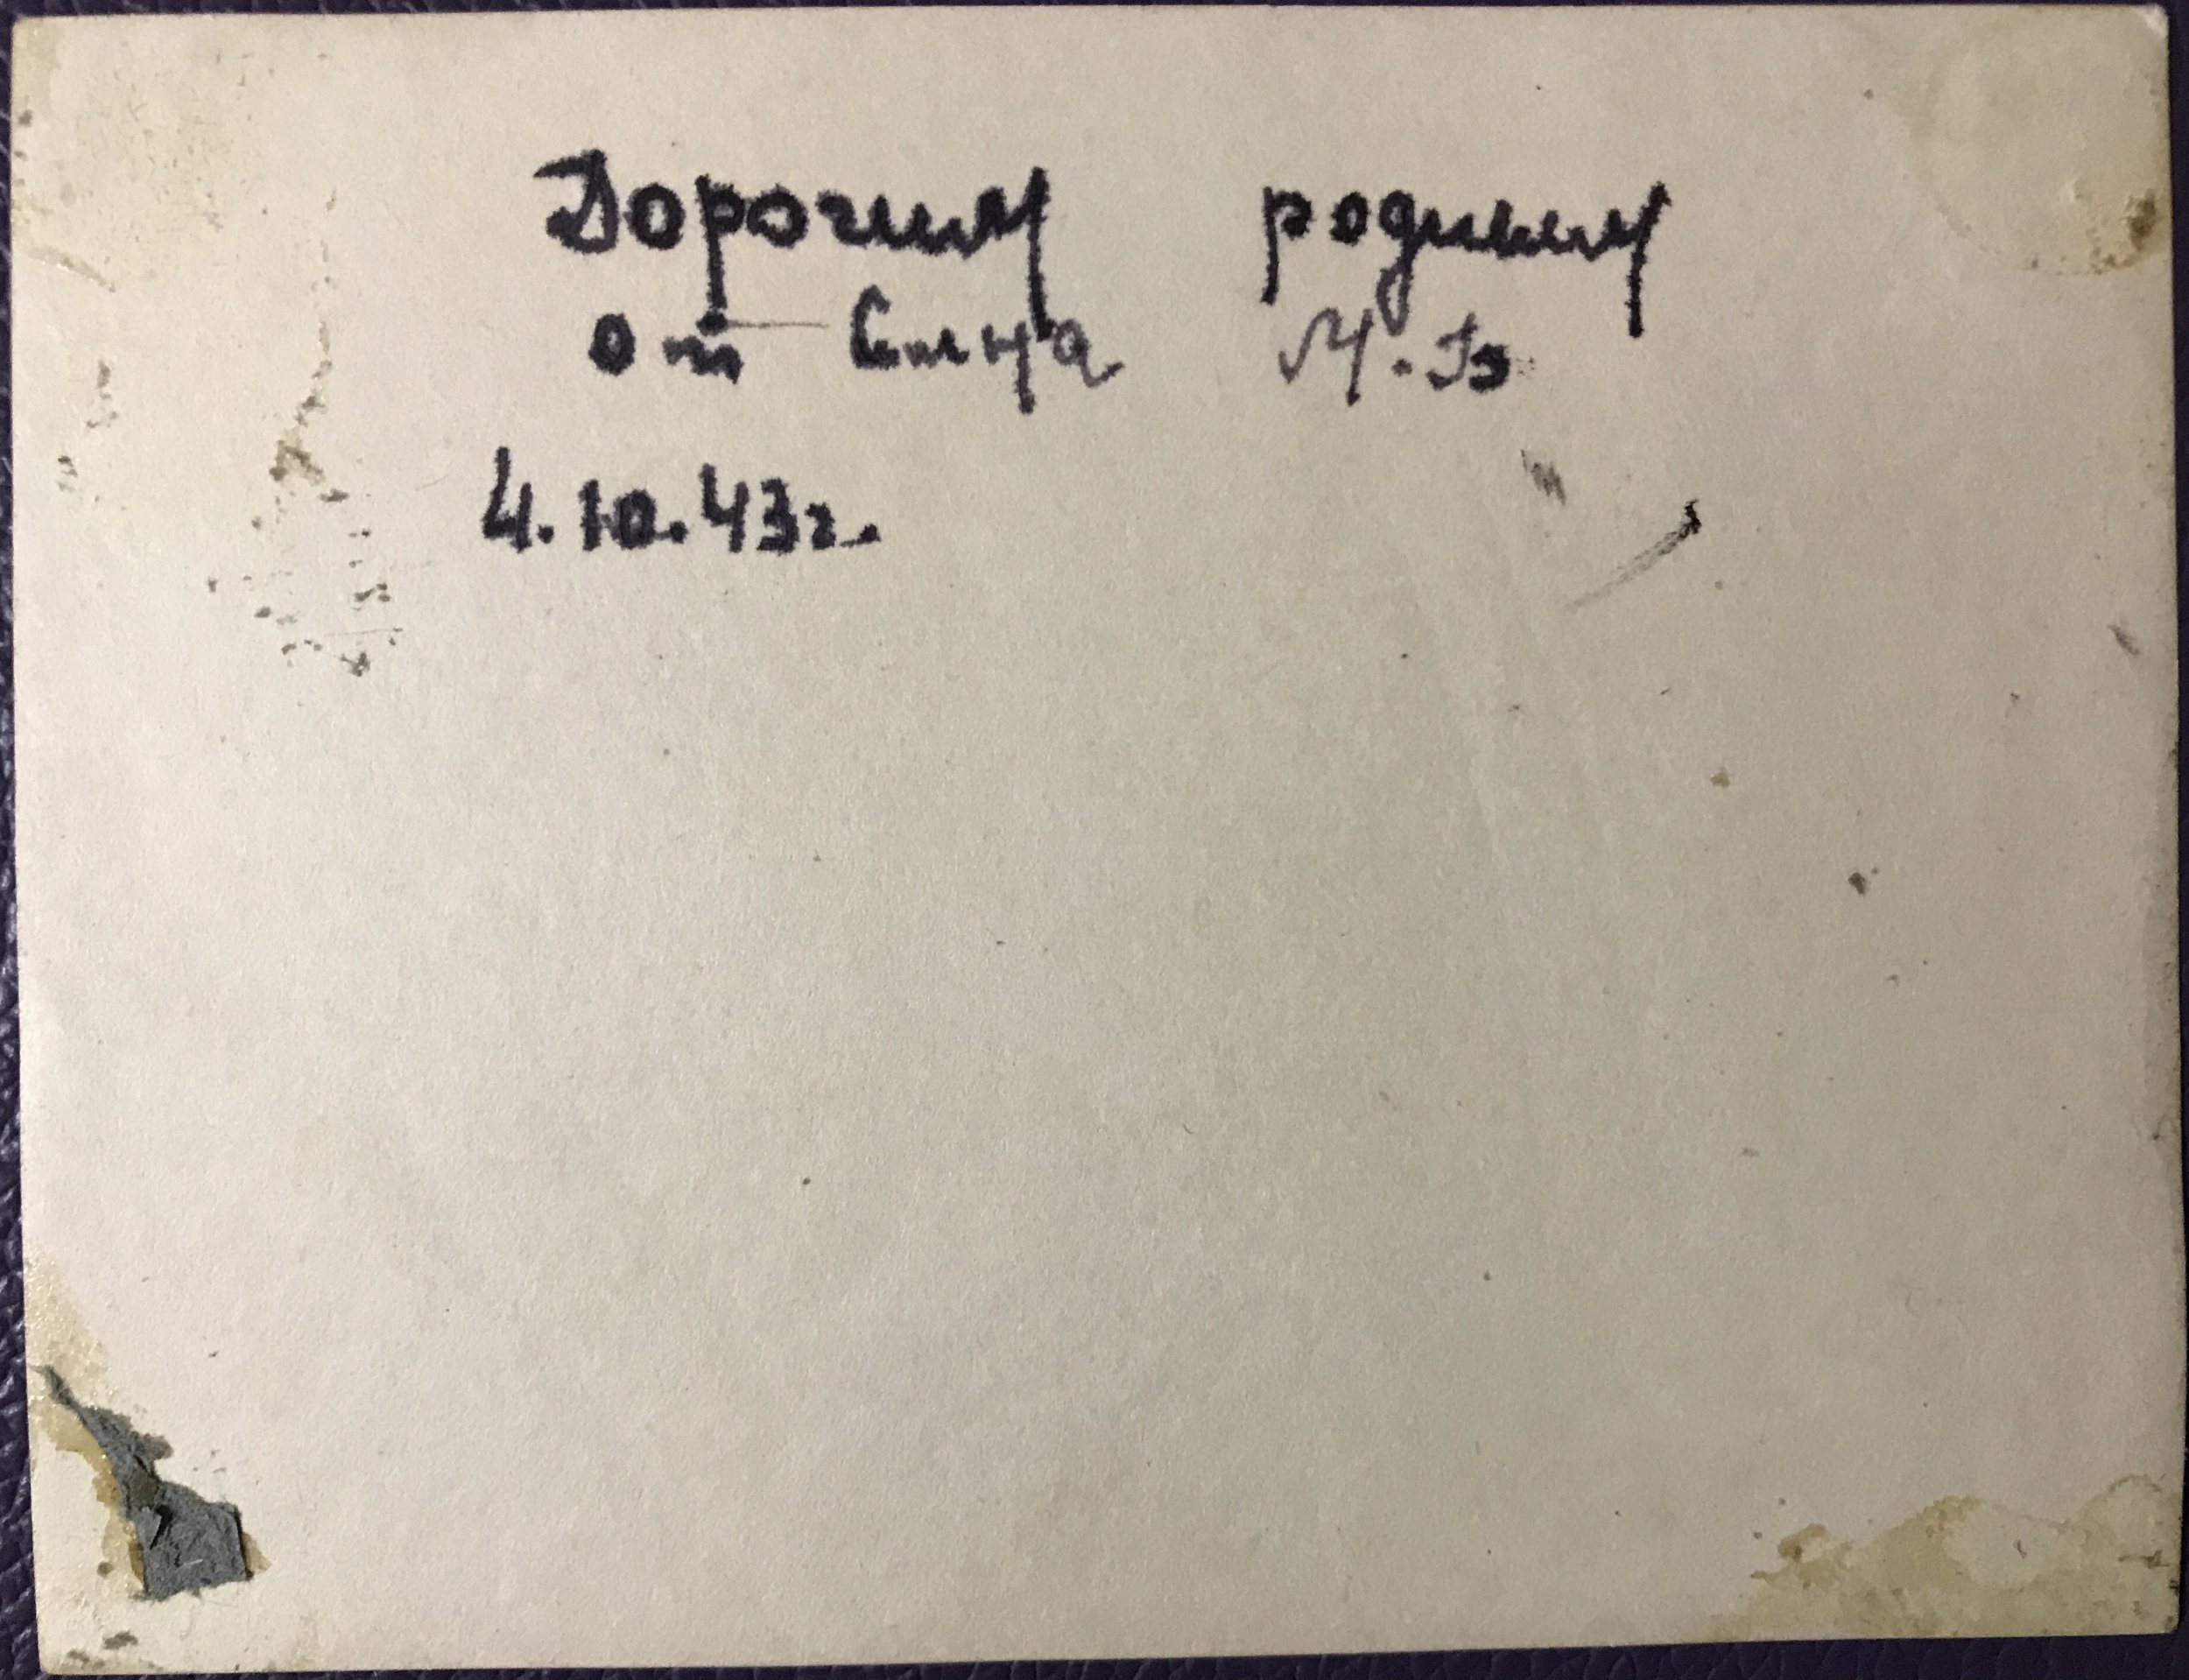 Дорогим родным
от Сына
4.10.43г.